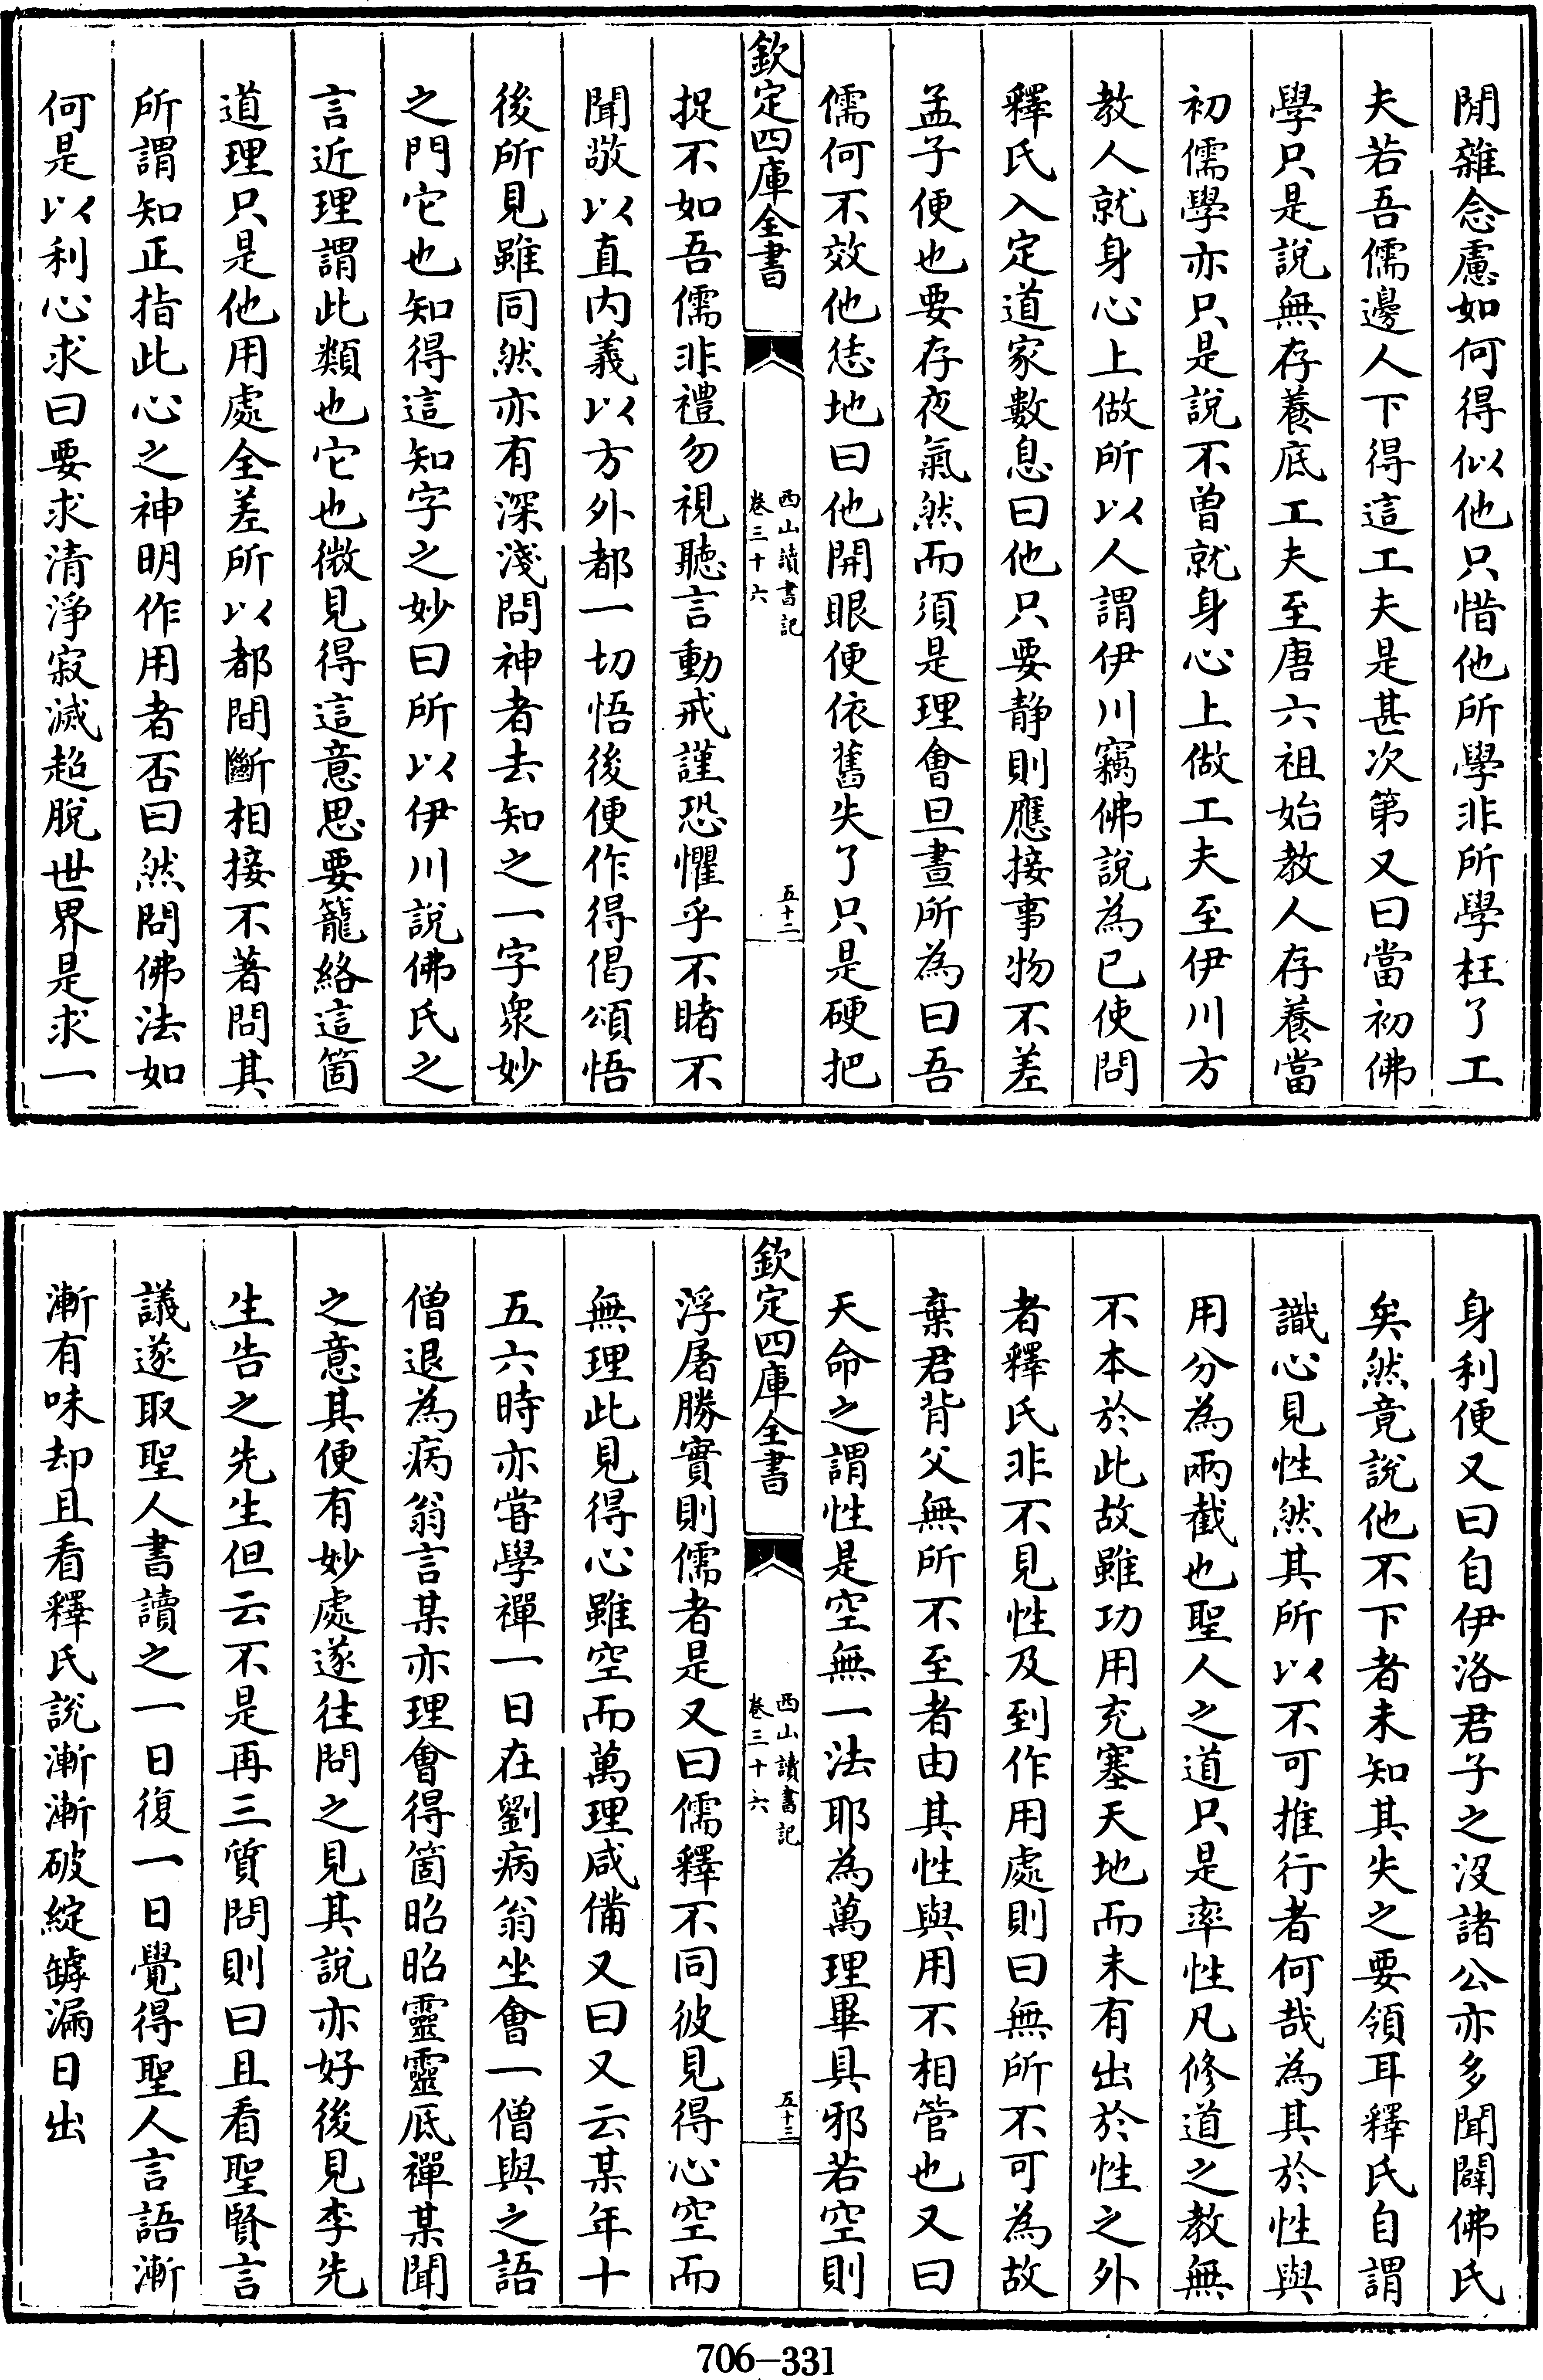 閒雜念慮如何得似他只惜他所學非所學枉了工
夫若吾儒邊人下得這工夫是甚次第又曰當初佛
學只是說無存養底工夫至唐六祖始教人存養當
初儒學亦只是說不曾就身心上做工夫至伊川方
教人就身心上做所以人謂伊川竊佛說為已使問
釋氏入定道家數息曰他只要静則應接事物不差
孟子便也要存夜氣然而須是理會旦晝所為曰吾
儒何不效他恁地曰他開眼便依舊失了只是硬把
欽定四庫全書
西山讀書記
卷三十六
五十二
捉不如吾儒非禮勿視聽言動戒謹恐懼乎不睹不
聞敬以直内義以方外都一切悟後便作得偈頌悟
後所見雖同然亦有深淺問神者去知之一字衆妙
之門它也知得這知字之妙曰所以伊川說佛氏之
言近理謂此類也它也微見得這意思要籠絡這箇
道理只是他用處全差所以都間斷相接不著問其
所謂知正指此心之神明作用者否曰然問佛法如
何是以利心求曰要求清淨寂滅超脫世界是求一
身利便又曰自伊洛君子之沒諸公亦多聞闢佛氏
矣然竟說他不下者未知其失之要領耳釋氏自謂
識心見性然其所以不可推行者何哉為其於性與
用分為兩截也聖人之道只是率性凡修道之教無
不本於此故雖功用充塞天地而未有出於性之外
者釋氏非不見性及到作用處則曰無所不可為故
棄君背父無所不至者由其性與用不相管也又曰
天命之謂性是空無一法耶為萬理畢具邪若空則
欽定四庫全書
西山讀書記
卷三十六
五十三
浮屠勝實則儒者是又曰儒釋不同彼見得心空而
無理此見得心雖空而萬理咸備又曰又云某年十
五六時亦嘗學禪一日在劉病翁坐會一僧與之語
僧退為病翁言某亦理會得箇昭昭靈靈底禪某聞
之意其便有妙處遂往問之見其說亦好後見李先
生告之先生但云不是再三質問則曰且看聖賢言
議遂取聖人書讀之一日復一日覺得聖人言語漸
漸有味却且看釋氏說漸漸破綻罅漏日出
706-331